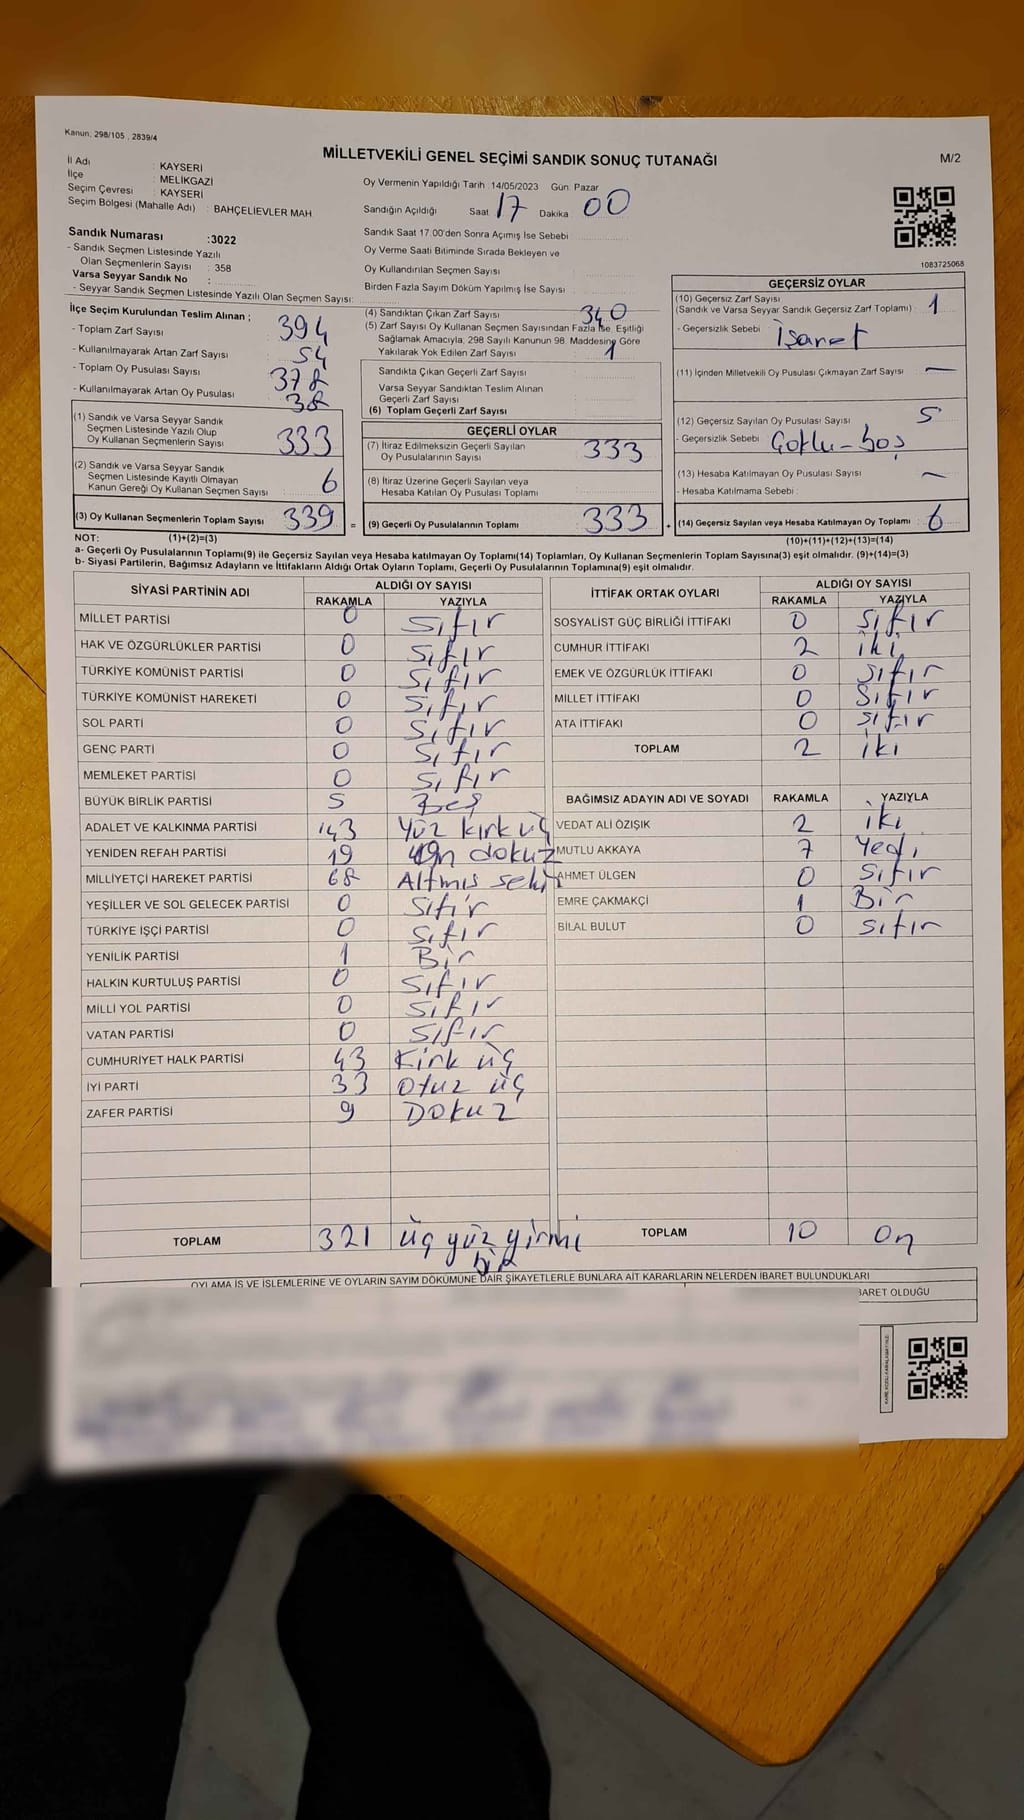 Kanun: 298/105 , 2839/4
MİLLETVEKİLİ GENEL SEÇİMİ SANDIK SONUÇ TUTANAĞI
M/2
İl Adı : KAYSERİ
İlçe : MELİKGAZİ
Seçim Çevresi : KAYSERİ
Seçim Bölgesi (Mahalle Adı) : BAHÇELİEVLER MAH
Sandık Numarası :3022
- Sandık Seçmen Listesinde Yazılı
Olan Seçmenlerin Sayısı : 358
Varsa Seyyar Sandık No :
- Seyyar Sandık Seçmen Listesinde Yazılı Olan Seçmen Sayısı:
Oy Vermenin Yapıldığı Tarih : 14/05/2023 Gün: Pazar
Sandığın Açıldığı Saat 17 Dakika 00
Sandık Saat 17.00'den Sonra Açımış İse Sebebi
Oy Verme Saati Bitiminde Sırada Bekleyen ve
Oy Kullandırılan Seçmen Sayısı
Birden Fazla Sayım Döküm Yapılmış İse Sayısı
1083725068
İlçe Seçim Kurulundan Teslim Alınan ;
- Toplam Zarf Sayısı 394
- Kullanılmayarak Artan Zarf Sayısı 54
- Toplam Oy Pusulası Sayısı 378
- Kullanılmayarak Artan Oy Pusulası 38
(1) Sandık ve Varsa Seyyar Sandık
Seçmen Listesinde Yazılı Olup
Oy Kullanan Seçmenlerin Sayısı 333
(2) Sandık ve Varsa Seyyar Sandık
Seçmen Listesinde Kayıtlı Olmayan
Kanun Gereği Oy Kullanan Seçmen Sayısı 6
(3) Oy Kullanan Seçmenlerin Toplam Sayısı 339 =
(4) Sandıktan Çıkan Zarf Sayısı 340
(5) Zarf Sayısı Oy Kullanan Seçmen Sayısından Fazla İse, Eşitliği
Sağlamak Amacıyla, 298 Sayılı Kanunun 98. Maddesine Göre
Yakılarak Yok Edilen Zarf Sayısı 1
Sandıkta Çıkan Geçerli Zarf Sayısı
Varsa Seyyar Sandıktan Teslim Alınan
Geçerli Zarf Sayısı
(6) Toplam Geçerli Zarf Sayısı
GEÇERLİ OYLAR
(7) İtiraz Edilmeksizin Geçerli Sayılan
Oy Pusulalarının Sayısı 333
(8) İtiraz Üzerine Geçerli Sayılan veya
Hesaba Katılan Oy Pusulası Toplamı
(9) Geçerli Oy Pusulalarının Toplamı 333 +
GEÇERSİZ OYLAR
(10) Geçersiz Zarf Sayısı
(Sandık ve Varsa Seyyar Sandık Geçersiz Zarf Toplamı) : 1
- Geçersizlik Sebebi : İşaret
(11) İçinden Milletvekili Oy Pusulası Çıkmayan Zarf Sayısı : —
(12) Geçersiz Sayılan Oy Pusulası Sayısı : 5
- Geçersizlik Sebebi : Çoklu-boş
(13) Hesaba Katılmayan Oy Pusulası Sayısı : —
- Hesaba Katılmama Sebebi :
(14) Geçersiz Sayılan veya Hesaba Katılmayan Oy Toplamı : 6
NOT: (1)+(2)=(3) (10)+(11)+(12)+(13)=(14)
a- Geçerli Oy Pusulalarının Toplamı(9) ile Geçersiz Sayılan veya Hesaba katılmayan Oy Toplamı(14) Toplamları, Oy Kullanan Seçmenlerin Toplam Sayısına(3) eşit olmalıdır. (9)+(14)=(3)
b- Siyasi Partilerin, Bağımsız Adayların ve İttifakların Aldığı Ortak Oyların Toplamı, Geçerli Oy Pusulalarının Toplamına(9) eşit olmalıdır.
SİYASİ PARTİNİN ADI ALDIĞI OY SAYISI
RAKAMLA YAZIYLA
MİLLET PARTİSİ 0 Sıfır
HAK VE ÖZGÜRLÜKLER PARTİSİ 0 Sıfır
TÜRKİYE KOMÜNİST PARTİSİ 0 Sıfır
TÜRKİYE KOMÜNİST HAREKETİ 0 Sıfır
SOL PARTİ 0 Sıfır
GENÇ PARTİ 0 Sıfır
MEMLEKET PARTİSİ 0 Sıfır
BÜYÜK BİRLİK PARTİSİ 5 Beş
ADALET VE KALKINMA PARTİSİ 143 Yüz kırk üç
YENİDEN REFAH PARTİSİ 19 on dokuz
MİLLİYETÇİ HAREKET PARTİSİ 68 Altmış sekiz
YEŞİLLER VE SOL GELECEK PARTİSİ 0 Sıfır
TÜRKİYE İŞÇİ PARTİSİ 0 Sıfır
YENİLİK PARTİSİ 1 Bir
HALKIN KURTULUŞ PARTİSİ 0 Sıfır
MİLLİ YOL PARTİSİ 0 Sıfır
VATAN PARTİSİ 0 Sıfır
CUMHURİYET HALK PARTİSİ 43 Kırk üç
İYİ PARTİ 33 Otuz üç
ZAFER PARTİSİ 9 Dokuz
TOPLAM 321 üç yüz yirmi
bir
İTTİFAK ORTAK OYLARI ALDIĞI OY SAYISI
RAKAMLA YAZIYLA
SOSYALİST GÜÇ BİRLİĞİ İTTİFAKI 0 Sıfır
CUMHUR İTTİFAKI 2 iki
EMEK VE ÖZGÜRLÜK İTTİFAKI 0 Sıfır
MİLLET İTTİFAKI 0 Sıfır
ATA İTTİFAKI 0 Sıfır
TOPLAM 2 iki
BAĞIMSIZ ADAYIN ADI VE SOYADI RAKAMLA YAZIYLA
VEDAT ALİ ÖZIŞIK 2 iki
MUTLU AKKAYA 7 Yedi
AHMET ÜLGEN 0 Sıfır
EMRE ÇAKMAKÇİ 1 Bir
BİLAL BULUT 0 Sıfır
TOPLAM 10 On
OYLAMA İŞ VE İŞLEMLERİNE VE OYLARIN SAYIM DÖKÜMÜNE DAİR ŞİKAYETLERLE BUNLARA AİT KARARLARIN NELERDEN İBARET BULUNDUKLARI
BARET OLDUĞU